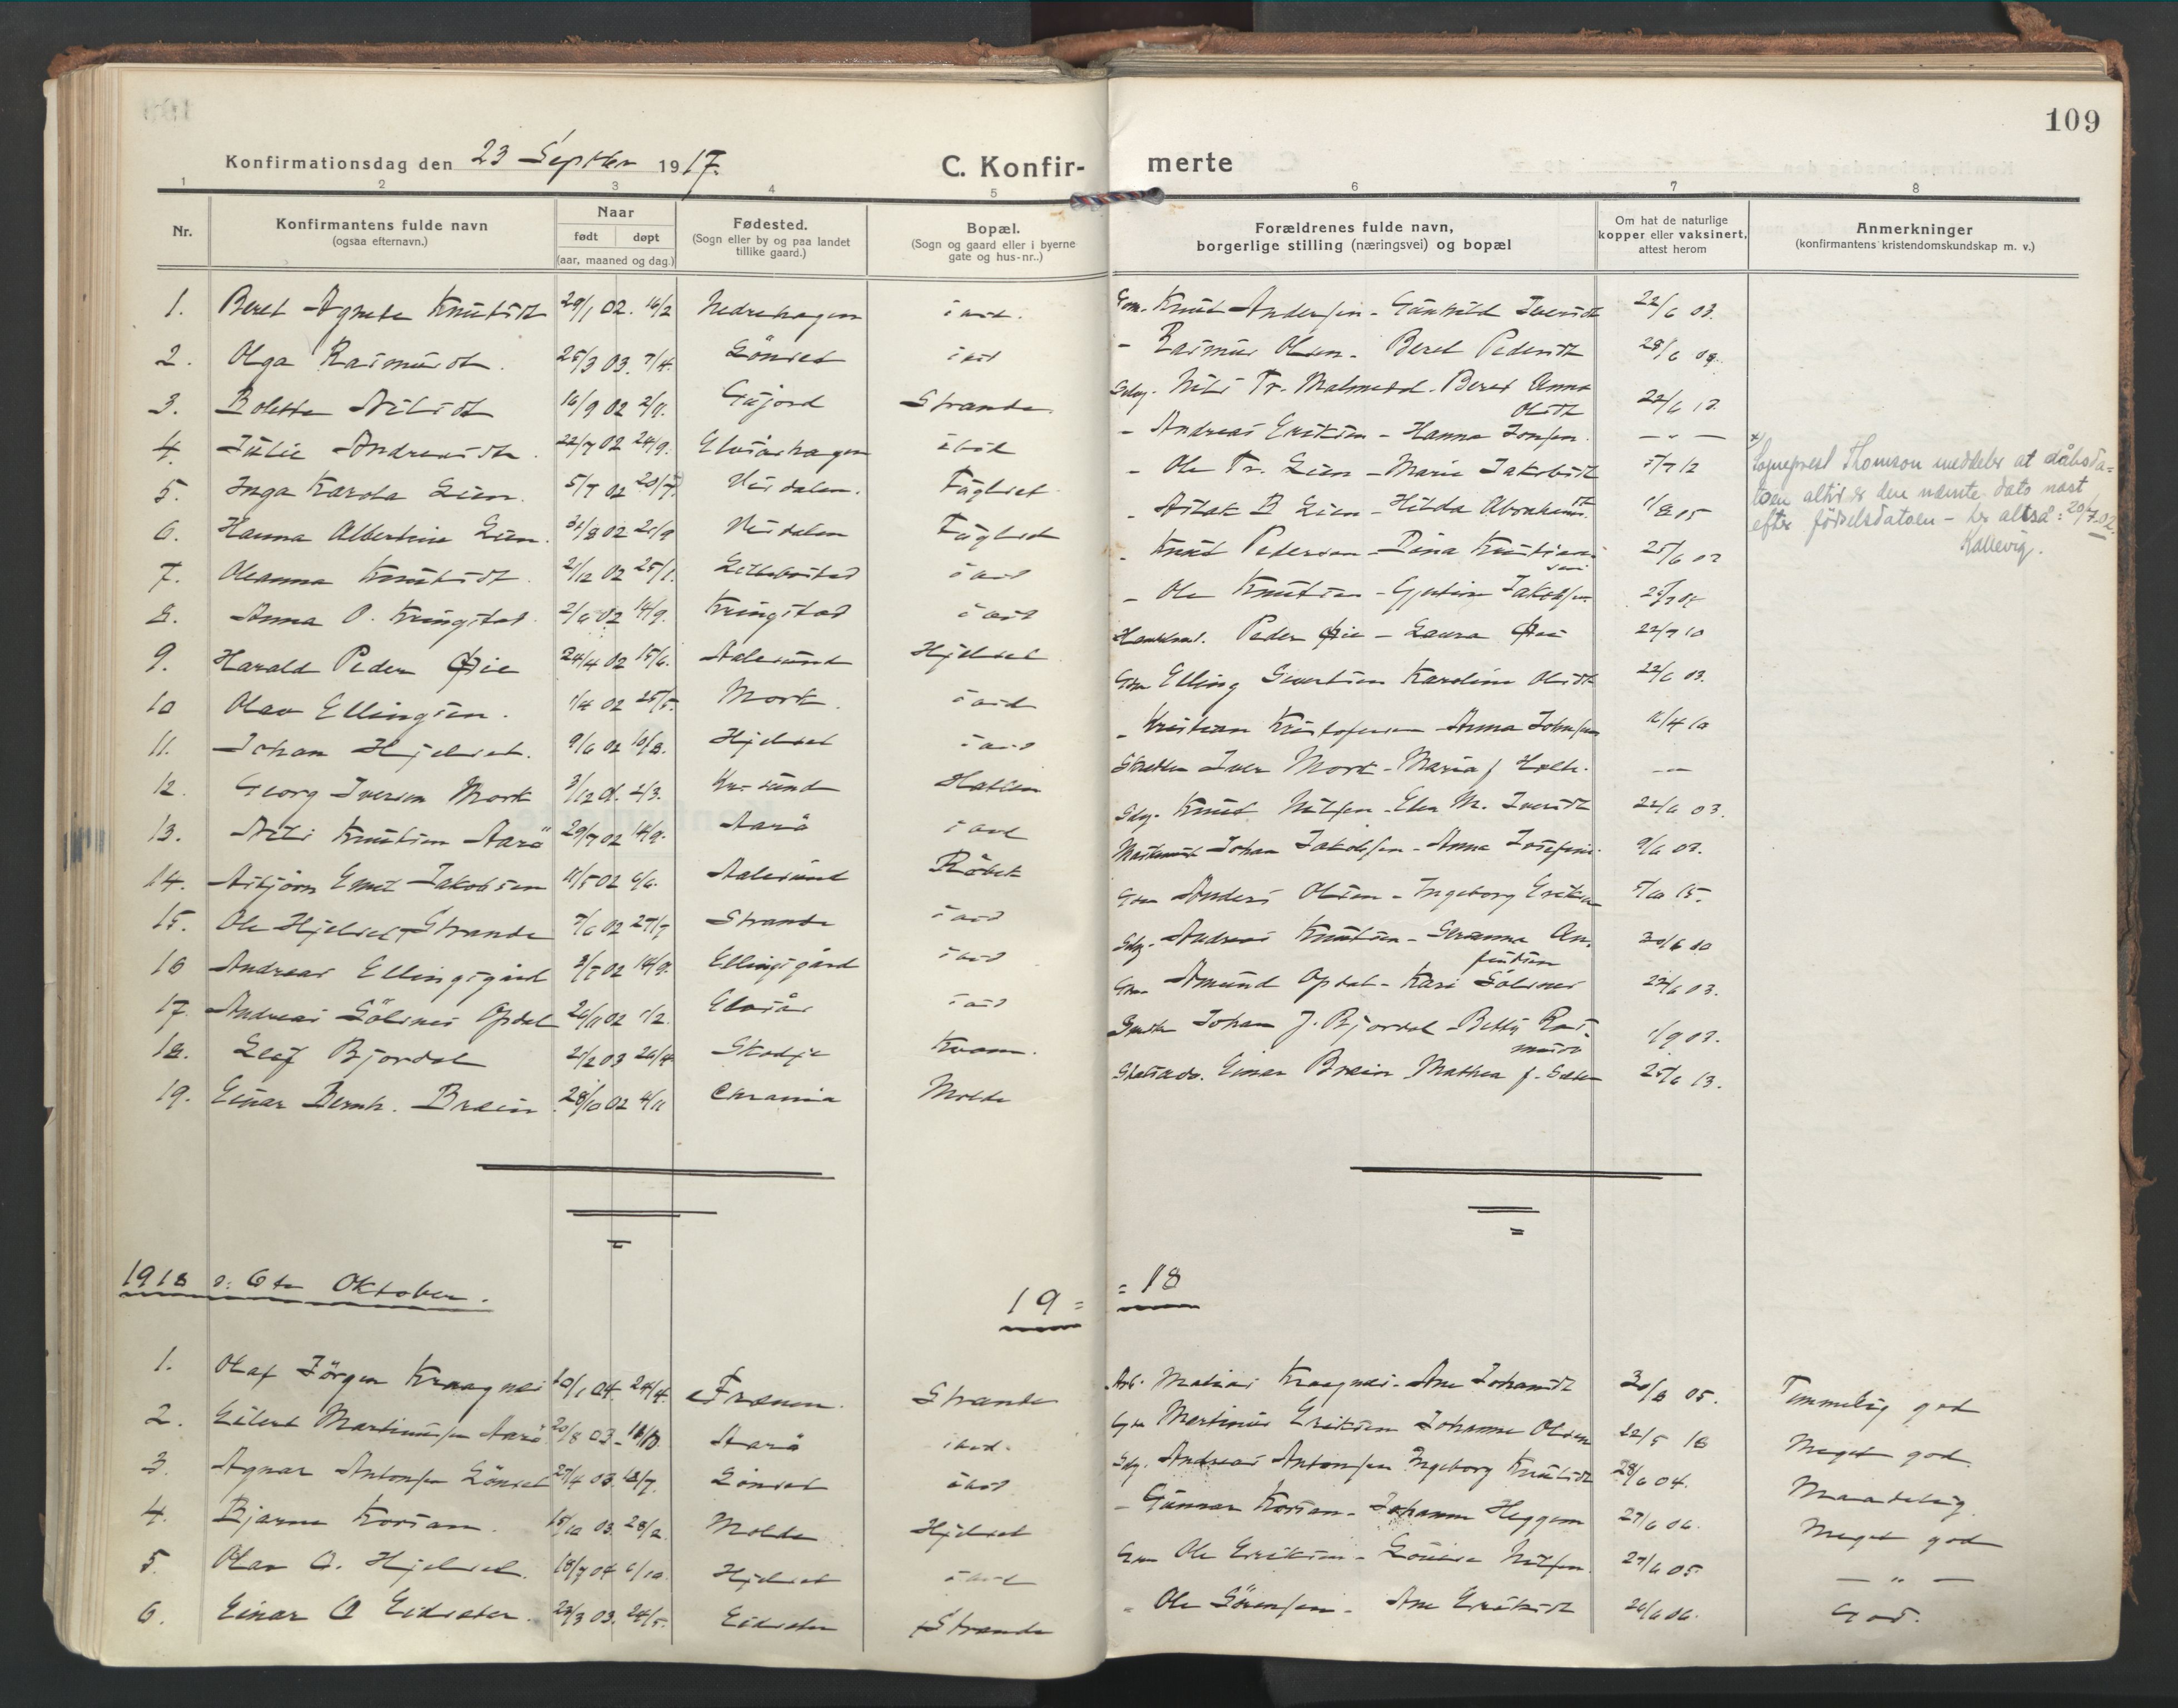 109
Konfirmationsdag den 23 Septbr 1917.
C. Konfir- merte
1 2 3 4 5 6 7 8
Nr.
Konfirmantens fulde navn
(ogsaa efternavn.)
Naar
født døpt
(aar, maaned og dag.)
Fødested.
(Sogn eller by og paa landet
tillike gaard.)
Bopæl.
(Sogn og gaard eller i byerne
gate og hus-nr..)
Forældrenes fulde navn,
borgerlige stilling (næringsvei) og bopæl
Om hat de naturlige
kopper eller vaksinert,
attest herom
Anmerkninger
(konfirmantens kristendomskundskap m. v.)
1. Beret Agnete Knutsdt 29/1 02. 16/2 Nedrehagen ibid. Gm. Knut Andersen - Gunhild Iversdt 22/6 03.
2. Olga Rasmusdt. 25/3 03. 7/4. Lönset ibid - Rasmus Olsen - Beret Pedersdt 28/6 09.
3. Bolette Nilsdt 16/9 02 2/9. Gujord Strande Gdbg. Nils Tr. Malmedal. Beret Anna
Olsdt 22/6 12.
4. Julie Andreasdtr. 22/7 02 24/9. Elvsåshagen ibid - Andreas Eriksen - Hanna Jonsen. — " —
5. Inga Karola Lien. 5/7 02 20/7. Usdalen. Fuglset - Ole Tr. Lien - Marie Jakobsdt 5/7 12
x) Sogneprest Thomson meddeler at dåbsda-
toen altid er den nævnte dato næst
efter fødselsdatoen - her altså: 20/7.02.
Kallevig.
6. Hanna Albertine Lien. 31/8 02 21/9 Usdalen Fuglset - Aslak B Lien - Hilda Abrahamsdt. 1/8 15
7. Oleanna Knutsdt. 2/12 02 25/1. Lillebostad ibid - Knut Pedersen - Dina Kristian-
sen 25/6 03
8. Anna O. Kringstad. 2/6 02 14/9. Kringstad ibid - Ole Knutsen - Gjertine Jakobsen
9. Harald Peder Øie 24/4 02 15/6. Aalesund Hjelset Handelsm. Peder Øie - Laura Øie 22/9 10
10 Olav Ellingsen. 1/4 02 25/5. Mork. ibid Gm Elling Sivertsen Karoline Olsdt 22/6 03.
11. Johan Hjelset. 9/6 02 10/8. Hjelset ibid - Kristian Kristofersen - Anna Johnsen 16/4 10
12. Georg Iversen Mork 3/12 01. 2/3. Kr.sund Hatlen Skredder Iver Mork - Maria f Holte. —
13. Nils Knutsen Aarö 29/7 02 14/9. Aarö ibid Gdbg. Knut Nilsen - Elen M. Iversdt 22/6 03.
14. Asbjörn Emil Jakobsen 11/5 02 6/6. Aalesund Röbek Maskinist Johan Jakobsen - Anna Josefine. 9/6 03.
15. Ole Hjelset Strande 7/6 02 27/7 Strande ibid Gm Anders Olsen - Ingeborg Eriksen 5/10 15.
16 Andreas Ellingsgård 3/7 02 14/9. Ellingsgård ibid Gdbg. Andreas Knutsen - Serianna An-
finsen 30/6 10
17. Andreas Sölsnes Opdal 26/11 02 1/2. Elvsås ibid Gm Amund Opdal - Kari Sölsnes 22/6 03.
18. Leif Bjordal 21/2 03 26/4 Skodje Kvam. Johan J. Bjordal - Betty Ras-
musd 1/9 03.
19. Einar Bernh. Bræin 28/10 02 4/11 Chrania Molde Einar Bræin Mathea f. Sæter 25/6 13.
1918 d: 6te Oktober.
19 = = 18
1. Olaf Jörgen Kraagnæs 10/1 04. 24/4. Frænen. Strande Arb. Matias Kraagnæs - Ane Johansdt 30/8 05. Temmelig god
2. Eilert Martinusen Aarö 20/8 03 - 18/10. Aarö ibid. Gm Martinus Eriksen Johanne Olsen 22/5 18 Meget god
3. Agnar Antonsen Lönset 27/4 03. 12/7. Lönset ibid Gdbg. Andreas Antonsen Ingeborg Knutsdt 28/6 04. Maadelig
4. Bjarne Korsan. 15/10 03. 28/2. Molde Hjelset - Gunnar Korsan - Johanne Heggem 27/6 06. Meget god
5. Olav O. Hjelset. 18/7 04 6/10. Hjelset ibid Gm Ole Eriksen - Lovise Nilsen. 27/6 05. — " —
6. Einar O Eidsæter. 23/3 03. 24/5. Eidsæter Strande - Ole Sörensen - Ane Eriksdt 26/6 06. God.